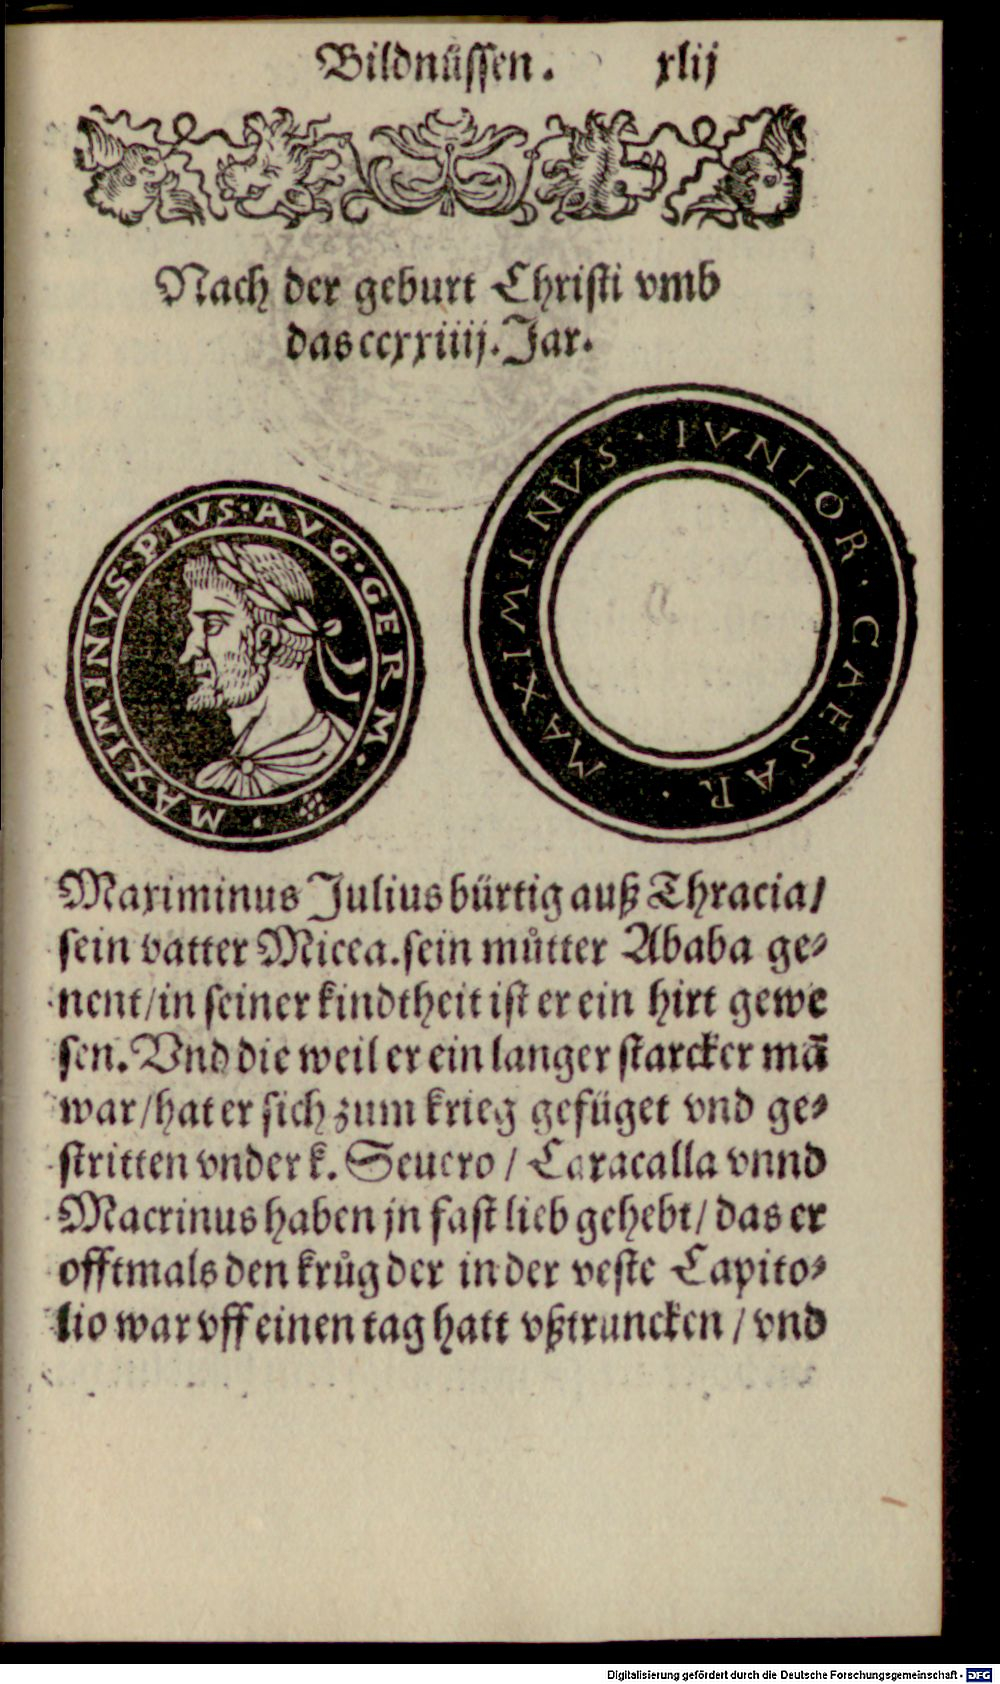 Bildnüssen. xlij
Nach der geburt Christi vmb
das ccxxiiij. Jar.
MAXIMINVS·PIVS·AVG·GERM·
MAXIMINVS·IVNIOR·CAESAR·
Maximinus Julius bürtig auß Thracia/
sein vatter Micea. sein můtter Ababa ge⸗
nent/in seiner kindtheit ist er ein hirt gewe
sen. Vnd die weil er ein langer starcker mā
war/hat er sich zum krieg gefüget vnd ge⸗
stritten vnder k. Seuero / Caracalla vnnd
Macrinus haben jn fast lieb gehebt/ das er
offtmals den krůg der in der veste Capito⸗
lio war vff einen tag hatt vßtruncken / vnd
Digitalisierung gefördert durch die Deutsche Forschungsgemeinschaft - DFG